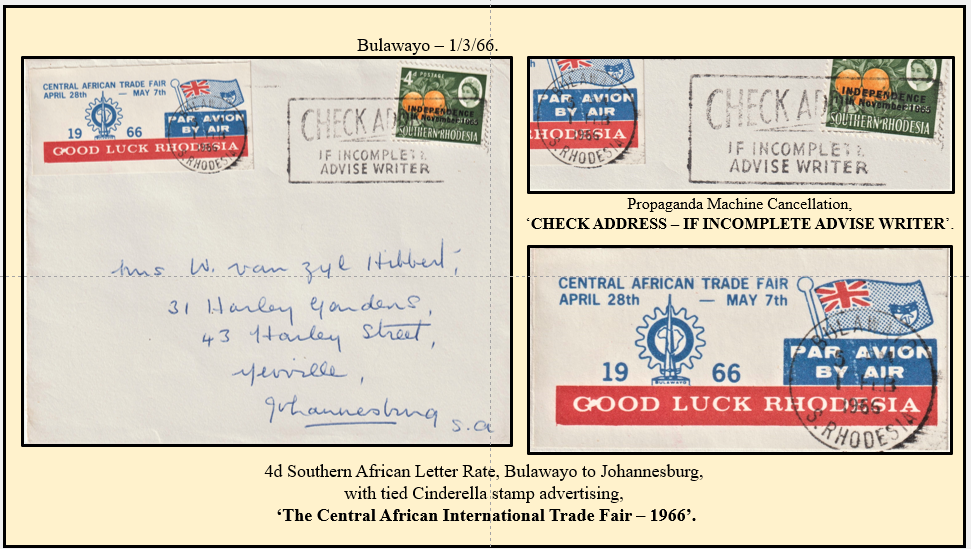 Bulawayo – 1/3/66.
CENTRAL AFRICAN TRADE FAIR
APRIL 28th — MAY 7th
19 66
PAR AVION
BY AIR
GOOD LUCK RHODESIA
1966
S. RHODESIA
CHECK AD
IF INCOMPLETE
ADVISE WRITER
4d POSTAGE
INDEPENDENCE
11th November 1965
SOUTHERN RHODESIA
Mrs W. van Zyl Hibbert,
31 Harley Gardens,
43 Harley Street,
Yeoville,
Johannesburg
S.A
PAR AVION
BY AIR
RHODESIA
66
1966
S. RHODESIA
CHECK AD
IF INCOMPLETE
ADVISE WRITER
INDEPENDENCE
11th November 1965
SOUTHERN RHODESIA
Propaganda Machine Cancellation,
‘CHECK ADDRESS – IF INCOMPLETE ADVISE WRITER’.
CENTRAL AFRICAN TRADE FAIR
APRIL 28th — MAY 7th
19 66
BULAWAYO
PAR AVION
BY AIR
GOOD LUCK RHODESIA
1966
S. RHODESIA
4d Southern African Letter Rate, Bulawayo to Johannesburg,
with tied Cinderella stamp advertising,
‘The Central African International Trade Fair – 1966’.